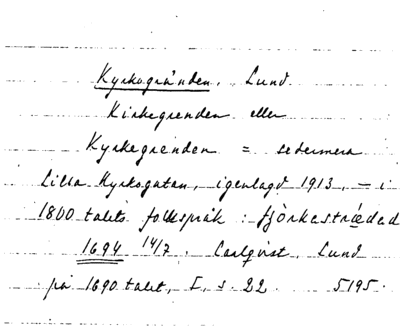 Kyrkogränden. Lund
Kirkegrenden eller
Kyrkegrenden = sedermera
Lilla Kyrkogatan, igenlagd 1913, — i
1800 talets folkspråk: fjörkasträdad
1694 14/7. Carlqvist, Lund
på 1690 talet, I, s. 22 5195.